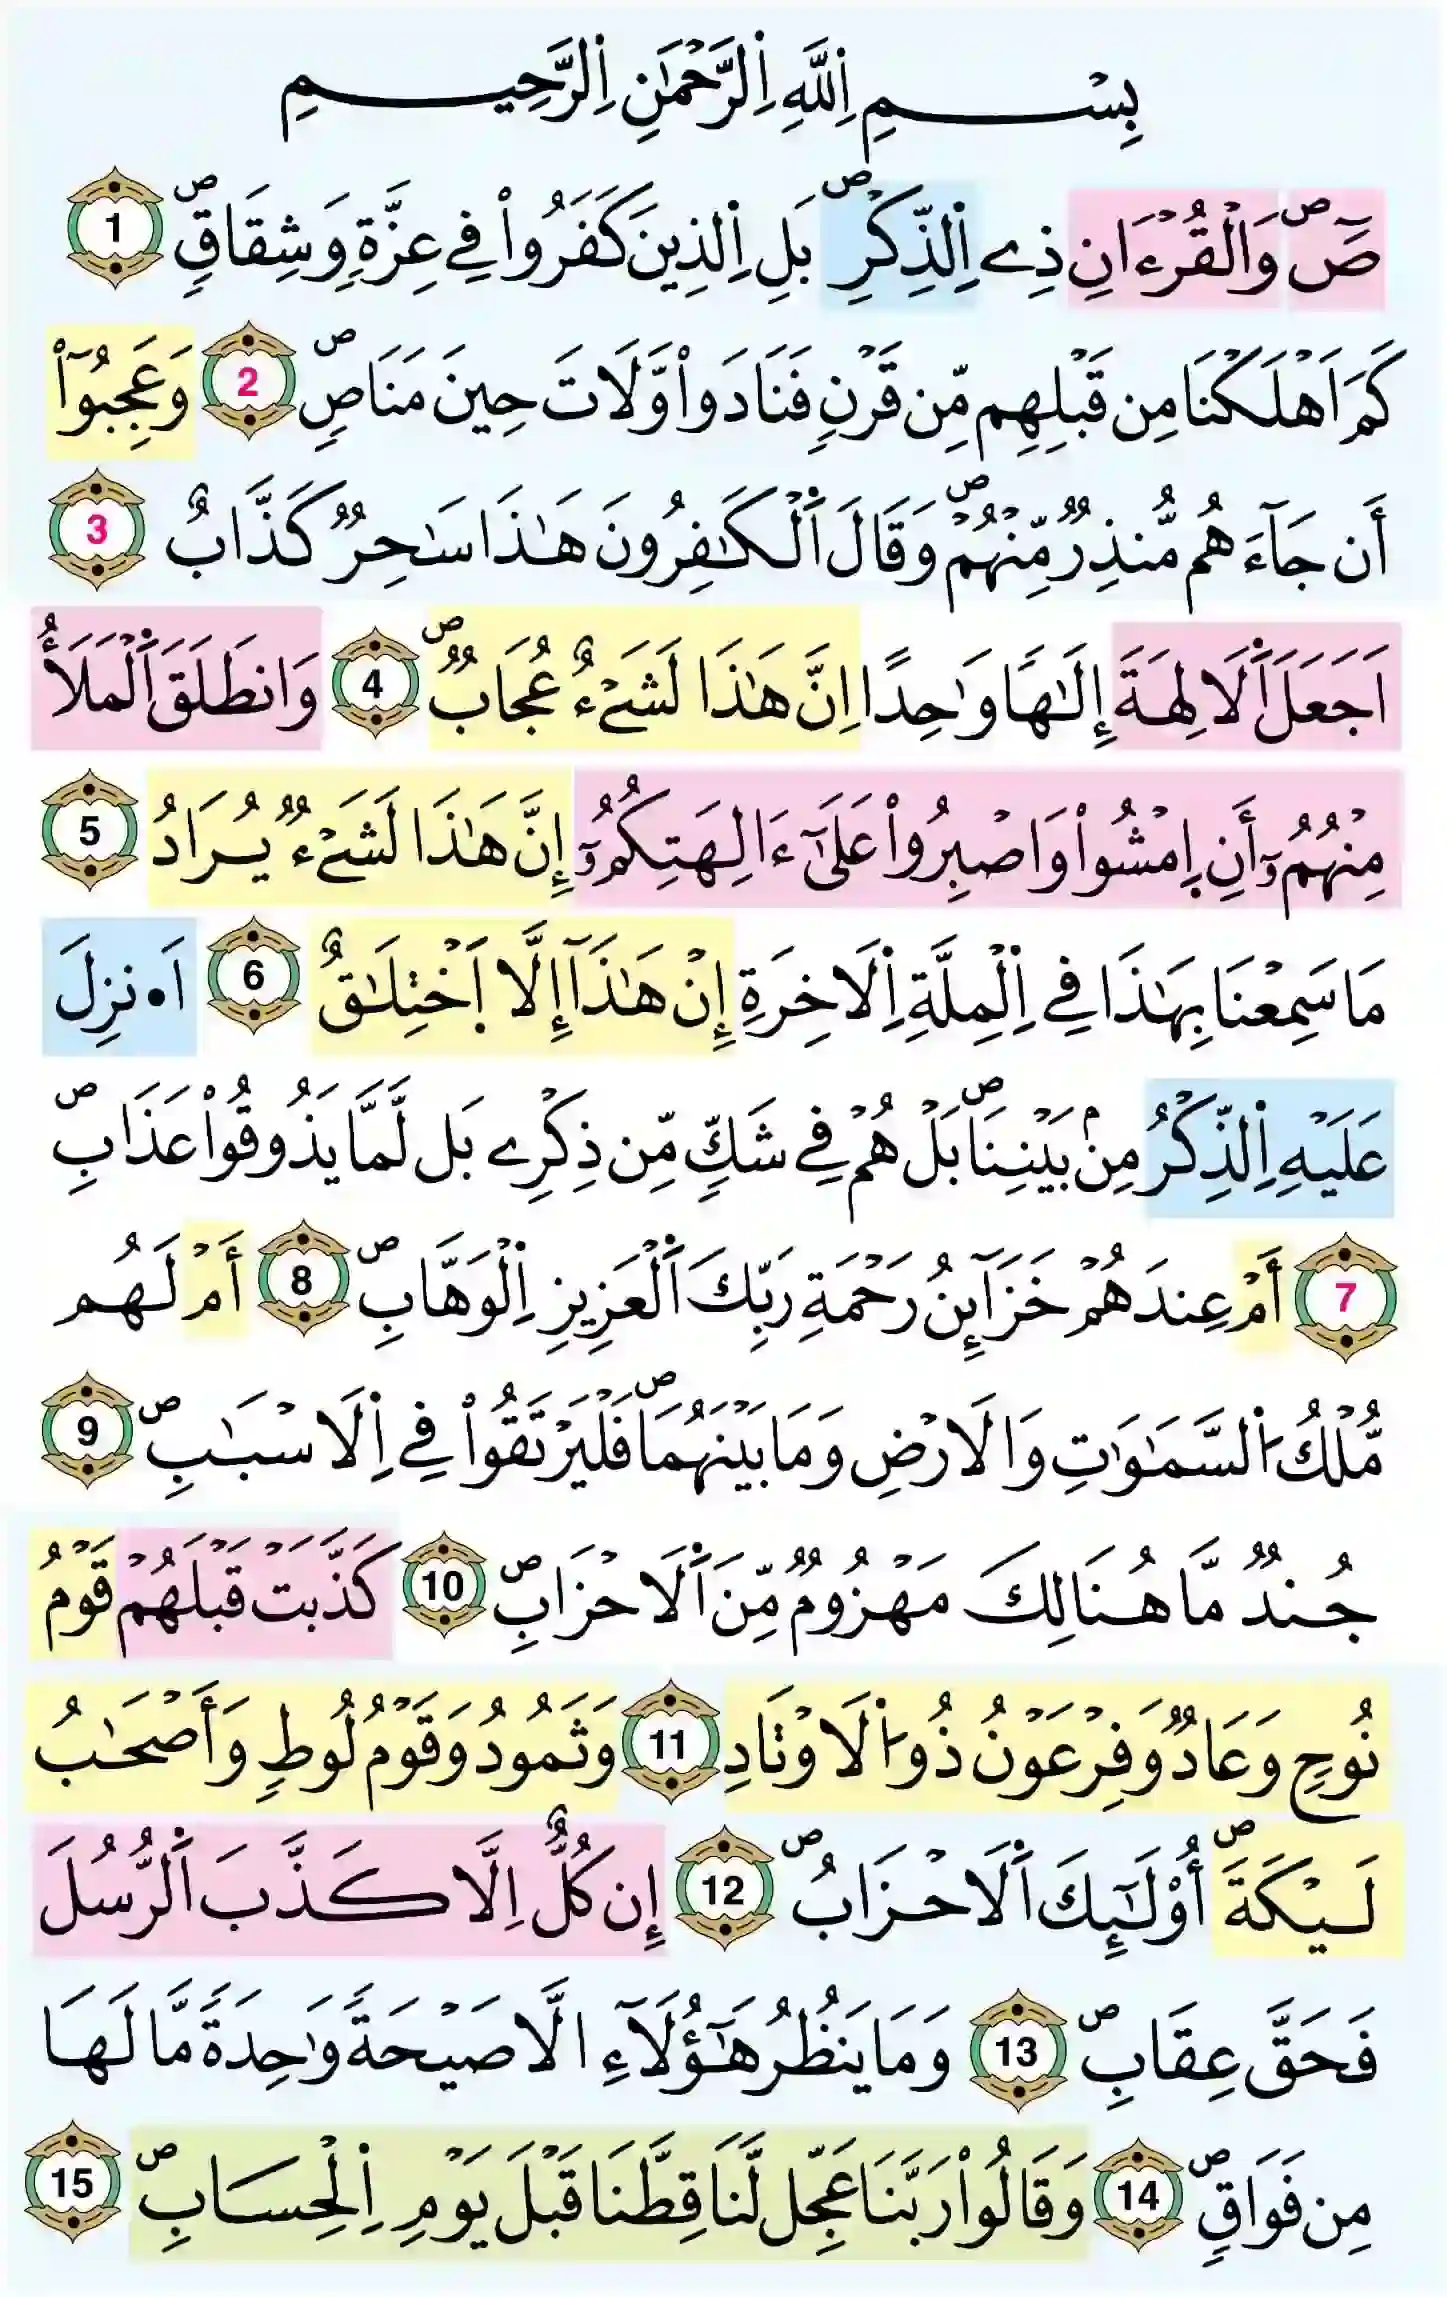 بِسْمِ اِ۬للَّهِ اِ۬لرَّحْمَٰنِ اِ۬لرَّحِيمِ
صَٓۖ وَالْقُرْءَانِ ذِے اِ۬لذِّكْرِۖ بَلِ اِ۬لذِينَ كَفَرُواْ فِے عِزَّةٖ وَشِقَاقٖۖ 1
كَمَ اَهْلَكْنَا مِن قَبْلِهِم مِّن قَرْنٖ فَنَادَواْ وَّلَاتَ حِينَ مَنَاصٖۖ 2 وَعَجِبُوٓاْ
أَن جَآءَهُم مُّنذِرٞ مِّنْهُمْۖ وَقَالَ اَ۬لْكَٰفِرُونَ هَٰذَا سَٰحِرٞ كَذَّابٌ 3
اَجَعَلَ اَ۬لَالِهَةَ إِلَٰهاٗ وَٰحِداً اِنَّ هَٰذَا لَشَےْءٌ عُجَابٞۖ 4 وَانطَلَقَ اَ۬لْمَلَأُ
مِنْهُمُۥٓ أَنِ اِ۪مْشُواْ وَاصْبِرُواْ عَلَيٰٓ ءَالِهَتِكُمُۥٓ إِنَّ هَٰذَا لَشَےْءٞ يُرَادُ 5
مَا سَمِعْنَا بِهَٰذَا فِے اِ۬لْمِلَّةِ اِ۬لَاخِرَةِ إِنْ هَٰذَآ إِلَّا اَ۪خْتِلَٰقٌ 6 اَ•نزِلَ
عَلَيْهِ اِ۬لذِّكْرُ مِنۢ بَيْنِنَاۖ بَلْ هُمْ فِے شَكّٖ مِّن ذِكْرِے بَل لَّمَّا يَذُوقُواْ عَذَابِۖ
7 أَمْ عِندَهُمْ خَزَآئِنُ رَحْمَةِ رَبِّكَ اَ۬لْعَزِيزِ اِ۬لْوَهَّابِۖ 8 أَمْ لَهُم
مُّلْكُ اُ۬لسَّمَٰوَٰتِ وَالَارْضِ وَمَا بَيْنَهُمَاۖ فَلْيَرْتَقُواْ فِے اِ۬لَاسْبَٰبِۖ 9
جُندٞ مَّا هُنَالِكَ مَهْزُومٞ مِّنَ اَ۬لَاحْزَابِۖ 10 كَذَّبَتْ قَبْلَهُمْ قَوْمُ
نُوحٖ وَعَادٞ وَفِرْعَوْنُ ذُو اُ۬لَاوْتَادِ 11 وَثَمُودُ وَقَوْمُ لُوطٖ وَأَصْحَٰبُ
لَيْكَةَۖ أُوْلَٰٓئِكَ اَ۬لَاحْزَابُۖ 12 إِن كُلٌّ اِلَّا كَذَّبَ اَ۬لرُّسُلَ
فَحَقَّ عِقَابِۖ 13 وَمَا يَنظُرُ هَٰٓؤُلَآءِ الَّا صَيْحَةٗ وَٰحِدَةٗ مَّا لَهَا
مِن فَوَاقٖۖ 14 وَقَالُواْ رَبَّنَا عَجِّل لَّنَا قِطَّنَا قَبْلَ يَوْمِ اِ۬لْحِسَابِۖ 15